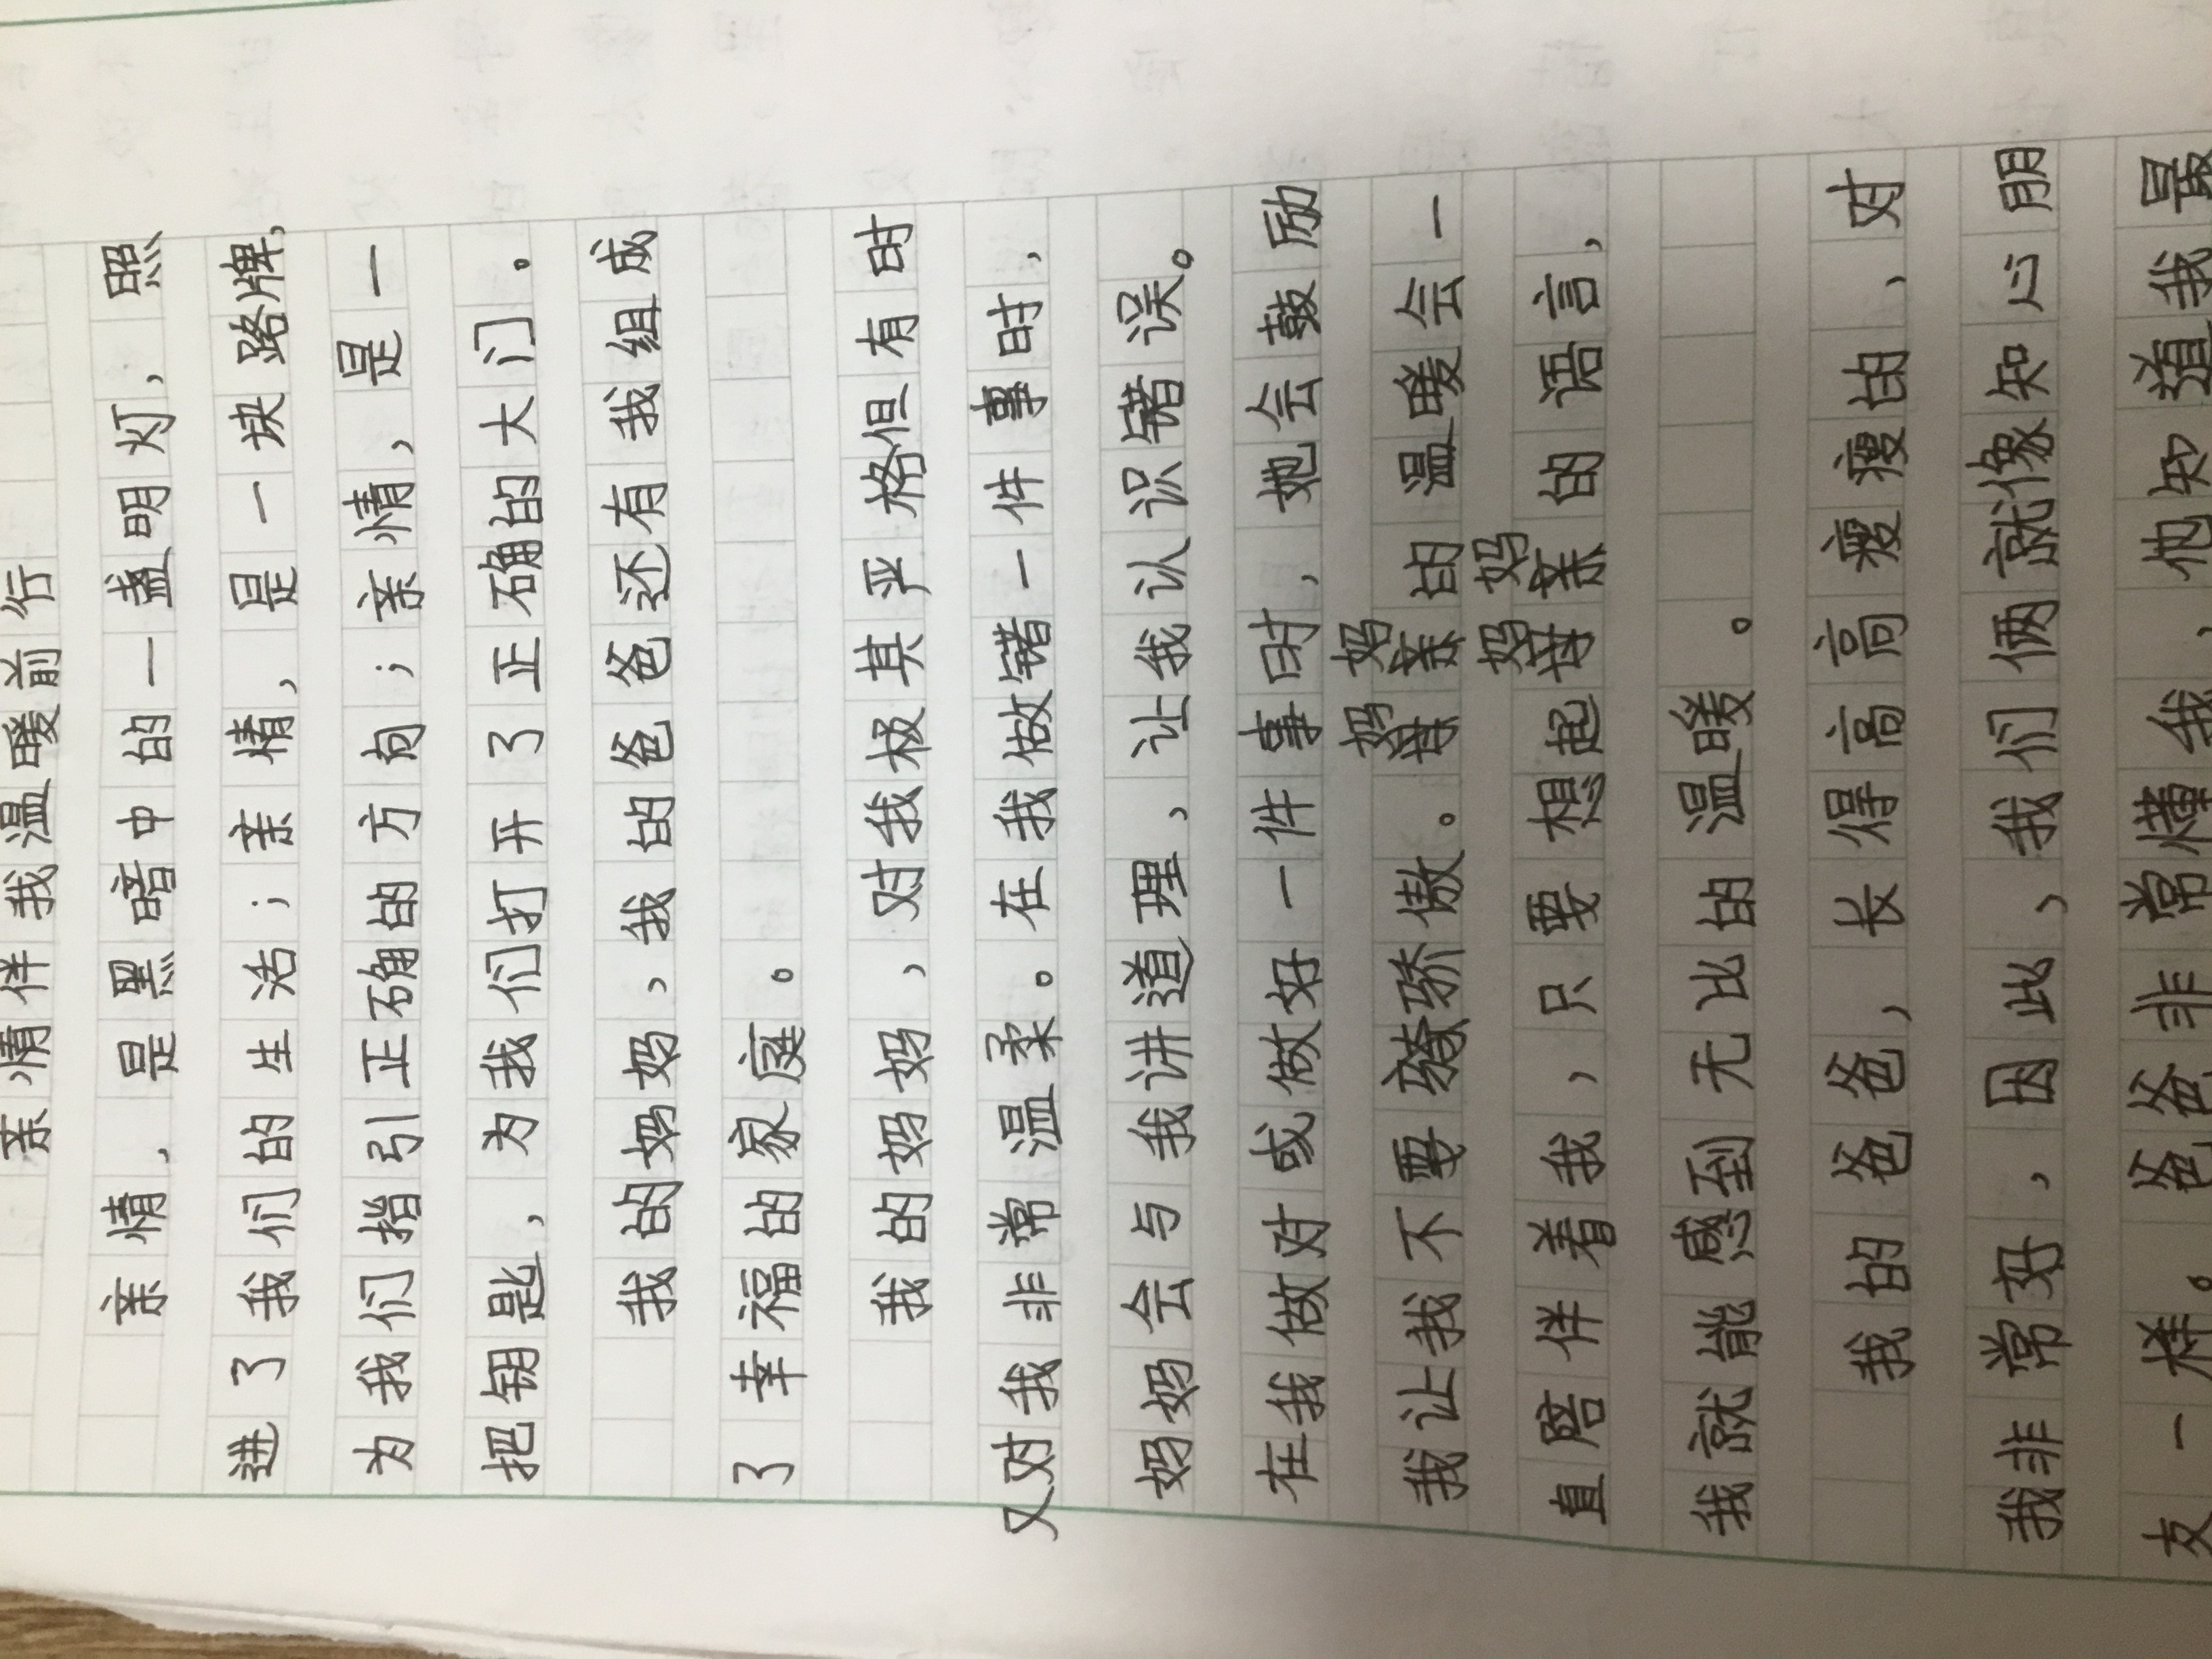 亲情伴我温暖前行
亲情，是黑暗中的一盏明灯，照
进了我们的生活；亲情，是一块路牌，
为我们指引正确的方向；亲情，是一
把钥匙，为我们打开了正确的大门。
我的妈妈，我的爸爸还有我组成
了幸福的家庭。
我的妈妈，对我极其严格但有时
又对我非常温柔。在我做错一件事时，
妈妈会与我讲道理，让我认识错误。
在我做对或做好一件事时，她会鼓励
我让我不要骄傲。妈妈的温暖会一
直陪伴着我，只要想起妈妈的语言，
我就能感到无比的温暖。
我的爸爸，长得高高瘦瘦的，对
我非常好，因此，我们俩就像知心朋
友一样。爸爸非常懂我，他知道我最